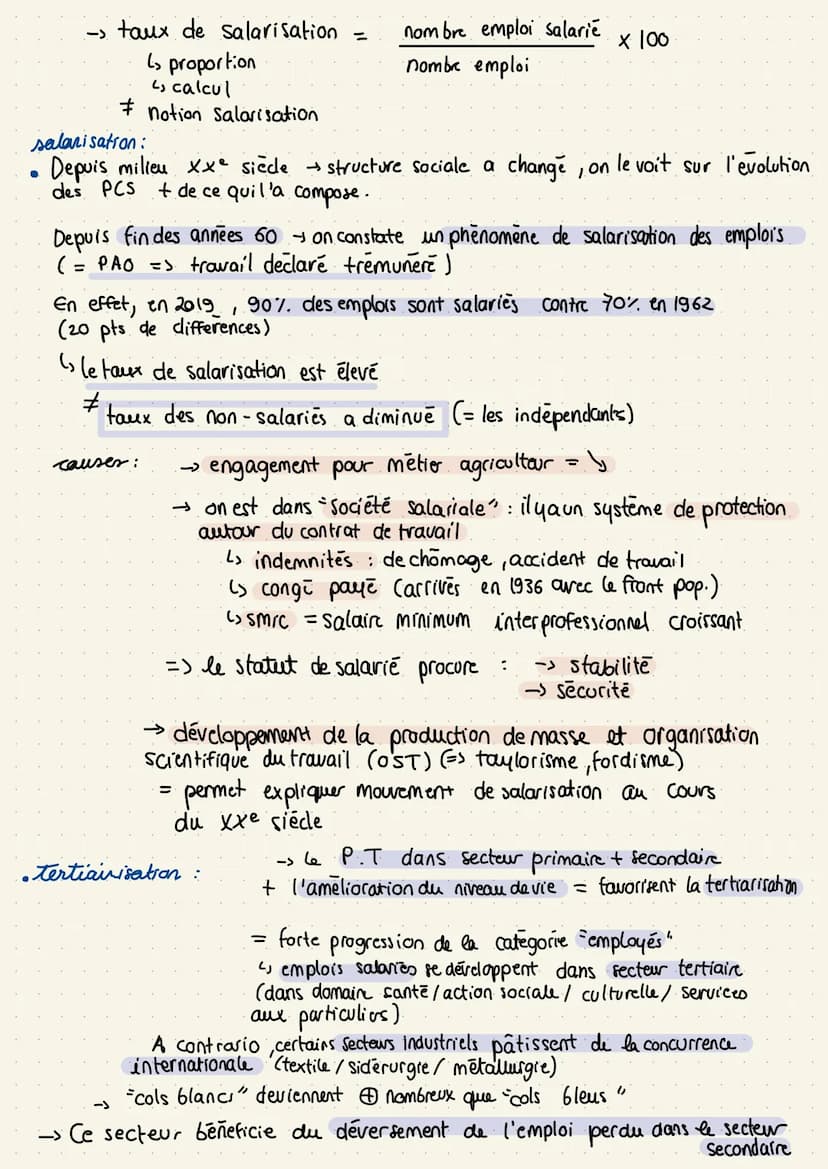 → taux de salarisation = nombre emploi salarié / nombre emploi x 100
↳ proportion
↳ calcul
≠ notion salarisation
salarisation :
• Depuis milieu XXe siècle → structure sociale a changé, on le voit sur l'évolution
des PCS + de ce qui l'a compose.
Depuis fin des années 60 → on constate un phénomène de salarisation des emplois
( = PAO => travail déclaré + rémunéré )
En effet, en 2019, 90% des emplois sont salariés contre 70% en 1962
(20 pts de différences)
↳ le taux de salarisation est élevé
≠ taux des non-salariés a diminué (= les indépendants)
causes : → engagement pour métier agriculteur = ↘
→ on est dans "société salariale" : il y a un système de protection
autour du contrat de travail
↳ indemnités : de chômage, accident de travail
↳ congé payé (arrivés en 1936 avec le front pop.)
↳ smic = salaire minimum interprofessionnel croissant
=> le statut de salarié procure : → stabilité
→ sécurité
→ développement de la production de masse et organisation
scientifique du travail (OST) (=> taylorisme, fordisme)
= permet expliquer mouvement de salarisation au cours
du XXe siècle
• tertiairisation : → le P.T dans secteur primaire + secondaire
+ l'amélioration du niveau de vie = favorisent la tertiarisation
= forte progression de la catégorie "employés"
↳ emplois salariés se développent dans secteur tertiaire
(dans domaine santé / action sociale / culturelle / services
aux particuliers)
A contrario, certains secteurs industriels pâtissent de la concurrence
internationale (textile / sidérurgie / métallurgie)
→ "cols blancs" deviennent ⊕ nombreux que "cols bleus"
→ Ce secteur bénéficie du déversement de l'emploi perdu dans le secteur
secondaire